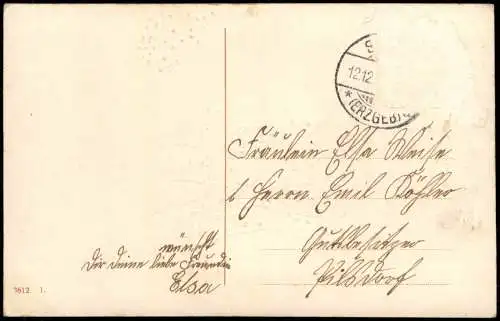 12.12.
* (ERZGEB)
Fräulein Elsa Weise
b Herrn Emil Köhler
Gutsbesitzer
wünscht
Dir deine liebe Freundin
Elsa
3812. 1.